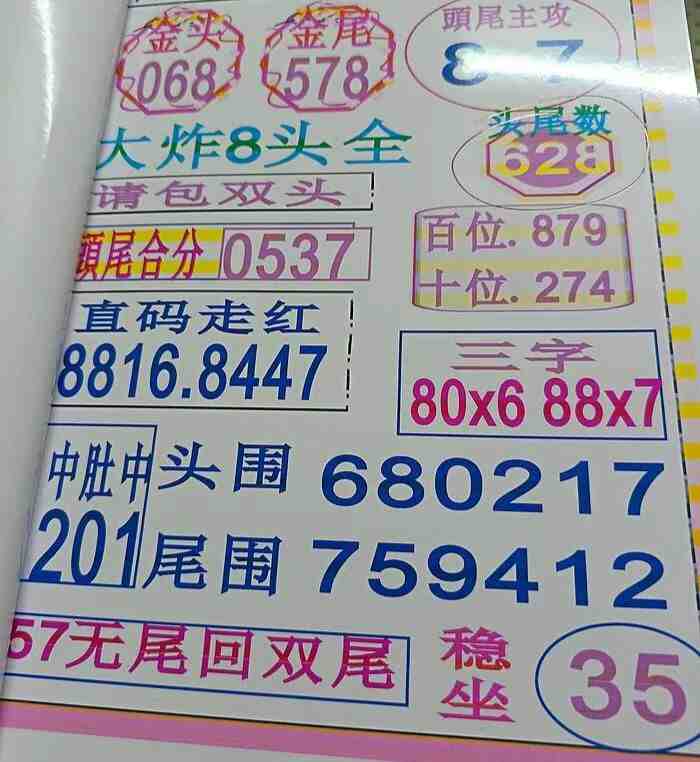 金头 金尾 頭尾主攻
068 578 8 7
大炸8头全 头尾数
628
请包双头
頭尾合分 0537
百位.879
十位.274
直码走红
8816.8447
三字
80x6 88x7
中肚中
201
头围 680217
尾围 759412
57无尾回双尾
稳坐 35